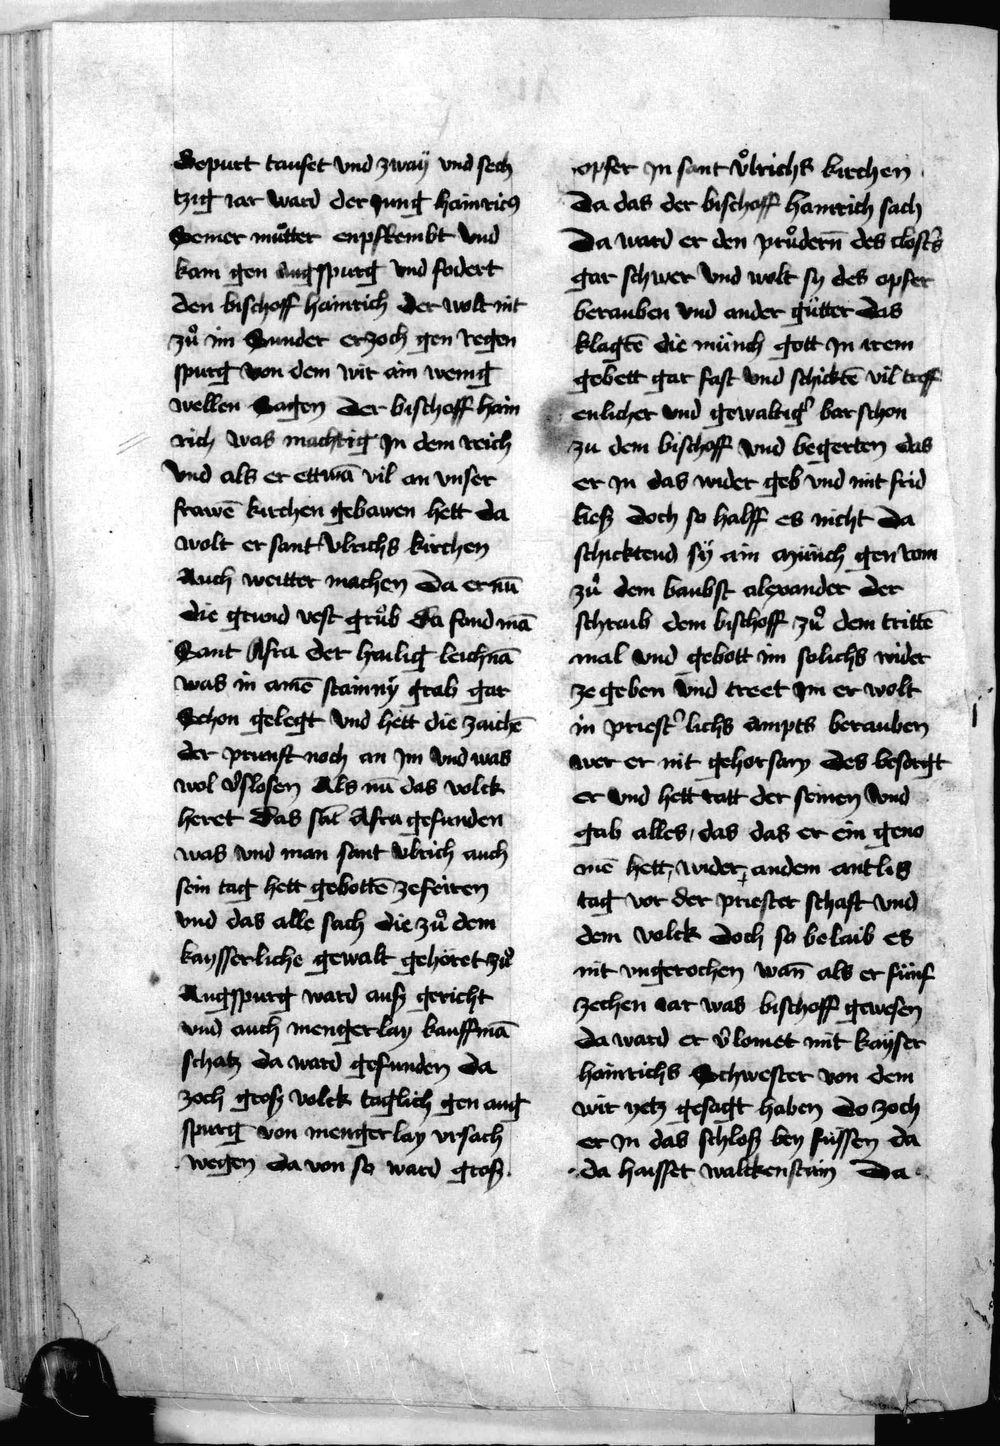 Gepurt tauset vnd zwaÿ vnd sech
tzig iar ward der jung hainrich
Seiner můtter enpfrembt vnd
kam gen augspurg vnd fodert
den bischoff hainrich der wolt nit
zů im Sunder er zoch gen regen
spurg von dem wir ain wenig
wellen Sagen der bischoff hain
rich was machtig jn dem reich
vnd als er ettwā vil an vnser
frawē kirchen gebawen hett da
wolt er sant vlrichs kirchen
Auch weitter machen Da er nū
die grund vest grůb Da fond mā
Sant Afra der hailig leichnā
was in ainē stainnÿ grab gar
Schon gelegt vnd hett die zaichē
der prunst noch an jm vnd was
wol v̓slosen Als nū das volck
heret Das sāt Afra gefunden
was vnd man sant vlrich auch
sein tag hett gebottē ze feiren
vnd das alle sach die zů dem
kaysserliche gewalt gehöret zů
Augspurg ward ausz gericht
vnd auch mengerlay kauffmā
schatz da ward gefunden da
zoch grosz volck taglich gen aug
spurg von mengerlay vrsach
wegen da von so ward grosz
opfer jn sant vͦlrichs kirchen
Da das der bischoff hainrich sach
Da ward er den průdern̄ des closts̓
gar schwer vnd wolt sy des opfer
berauben vnd ander gütter das
klagtē die münch gott jn irem
gebett gar fast vnd schicktē vil treff
enlicher vnd gewaltig̓ barschon
zu dem bischoff vnd begerten das
er jn das wider geb vnd mit frid
liesz doch so halff es nicht Da
schicktend sÿ ain münch gen rom
zů dem baubst alexander der
schraib dem bischoff zů dem trittē
mal vnd gebott im solichs wider
ze geben vnd treet jm er wolt
in priest̓lichs ampts berauben
wer er nit gehorsam Des besorgt
er vnd hett ratt der seinen vnd
gab alles das das er ein geno
mē hett wider andem antlis
tag vor der priester schaft vnd
dem volck doch so belaib es
nit vngerochen wan̄ als er fünf
zechen iar was bischoff gewesen
da ward er v̓lomet mit kaÿser
hainrichs Schwester von dem
wir yetz gesagt haben do zoch
er in das schlosz bey füssen da
da haisset walckenstain Da